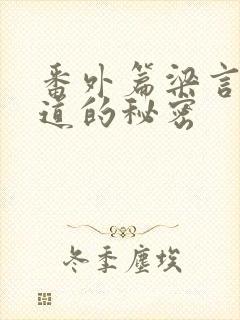 番外篇梁言
道的秘密
冬季尘埃